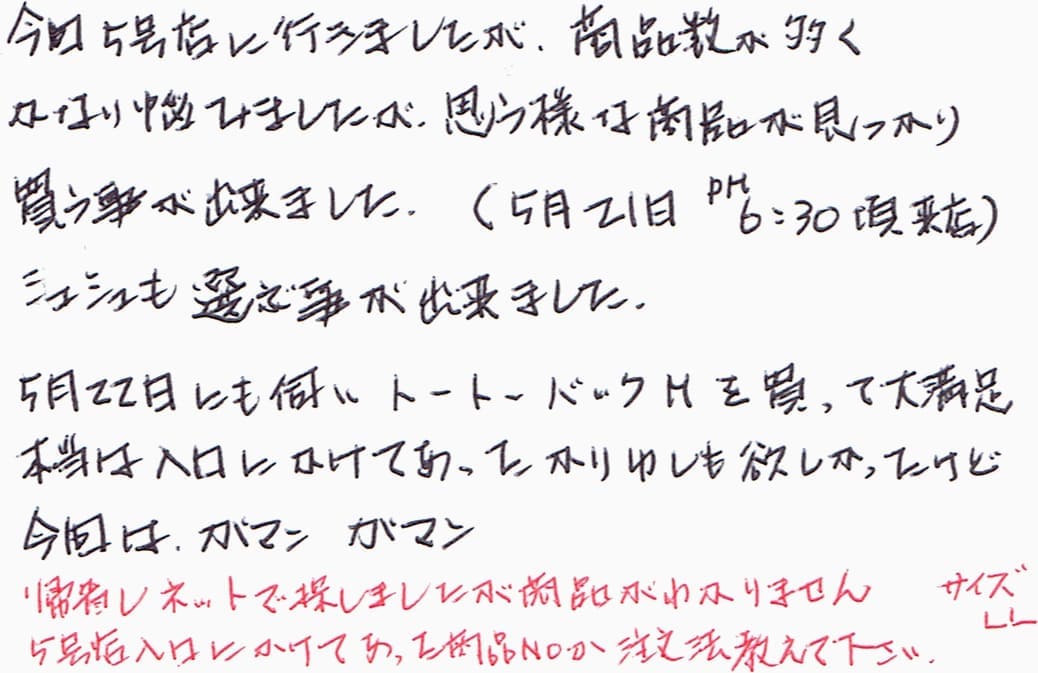 今回5号店に行きましたが、商品数が多く
かなり悩みましたが、思う様な商品が見つかり
買う事が出来ました。(5月21日 PM6:30頃来店)
シュシュも選ぶ事が出来ました。
5月22日にも伺い トートーバックMを買って大満足
本当は入口にかけてあったかりゆしも欲しかったけど
今回は、ガマン ガマン
帰省しネットで探しましたが商品がわかりません サイズLL
5号店入口にかけてあった商品NOか注文法教えて下さい。